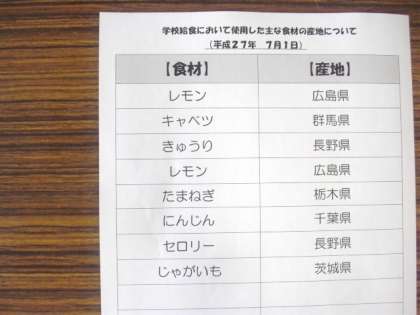 学校給食において使用した主な食材の産地について
(平成27年 7月1日)
【食材】 【産地】
レモン 広島県
キャベツ 群馬県
きゅうり 長野県
レモン 広島県
たまねぎ 栃木県
にんじん 千葉県
セロリー 長野県
じゃがいも 茨城県